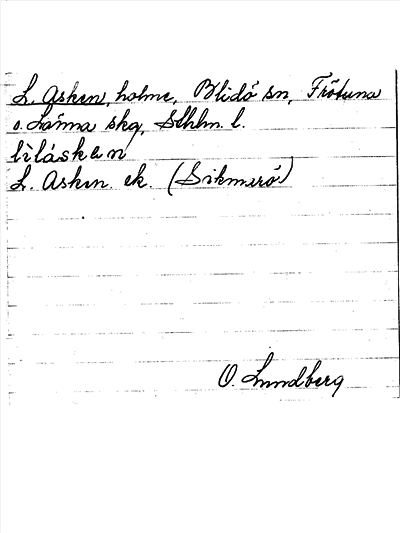 L. Asken, holme, Blidö sn, Frötuna
o. Länna skg, Sthlm. l.
lìláskan
L. Asken. ek. (Sikmarö)
O. Lundberg